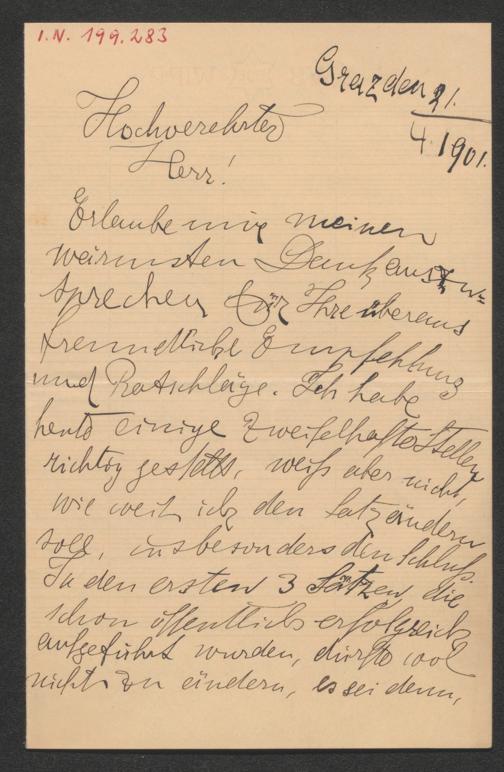 I.N. 199.283
Graz den 21.
4. 1901.
Hochverehrter
Herr!
Erlaube mir meinen
wärmsten Dank auszu-
sprechen für Ihre überaus
freundliche Empfehlung
und Ratschläge. Ich habe
heute einige zweifelhafte Stellen
richtig gestellt, weiß aber nicht,
wie weit ich den Satz ändern
soll, insbesonders den Schluß.
In den ersten 3 Sätzen, die
schon öffentlich erfolgreich
aufgeführt wurden, dürfte wol
nichts zu ändern, es sei denn,